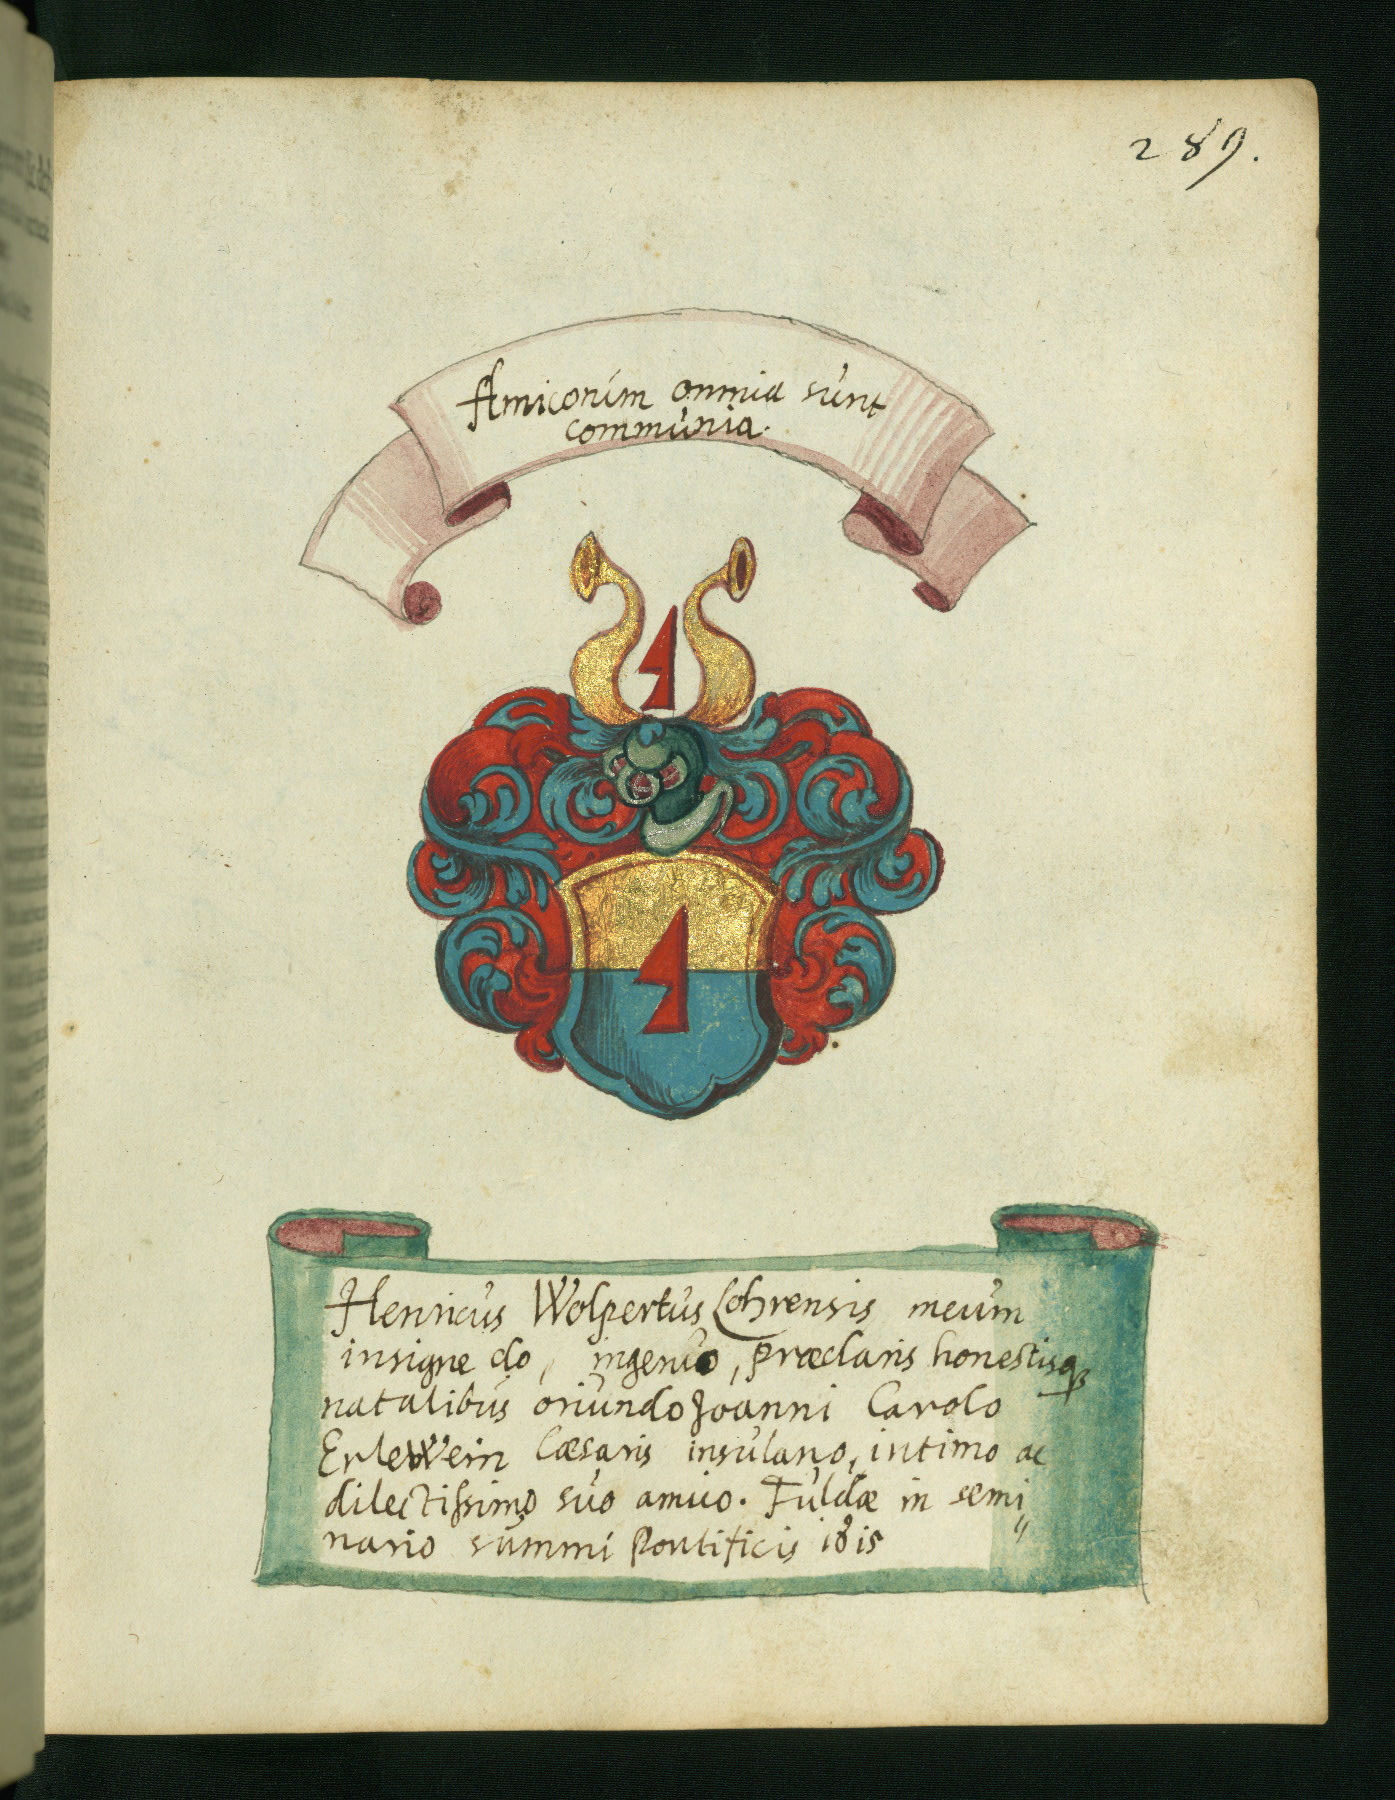 289.
Amicorúm omnia súnt
commúnia.
Henricús Wolpertús Lohrensis meúm
insigne do, ingenúo, præclaris honestisq3
natalibús oriúndo Joanni Carolo
Erlewein Cæsaris insúlano, intimo ac
dilectissimo súo amico. Fúldæ in semi
nario súmmi Pontificis